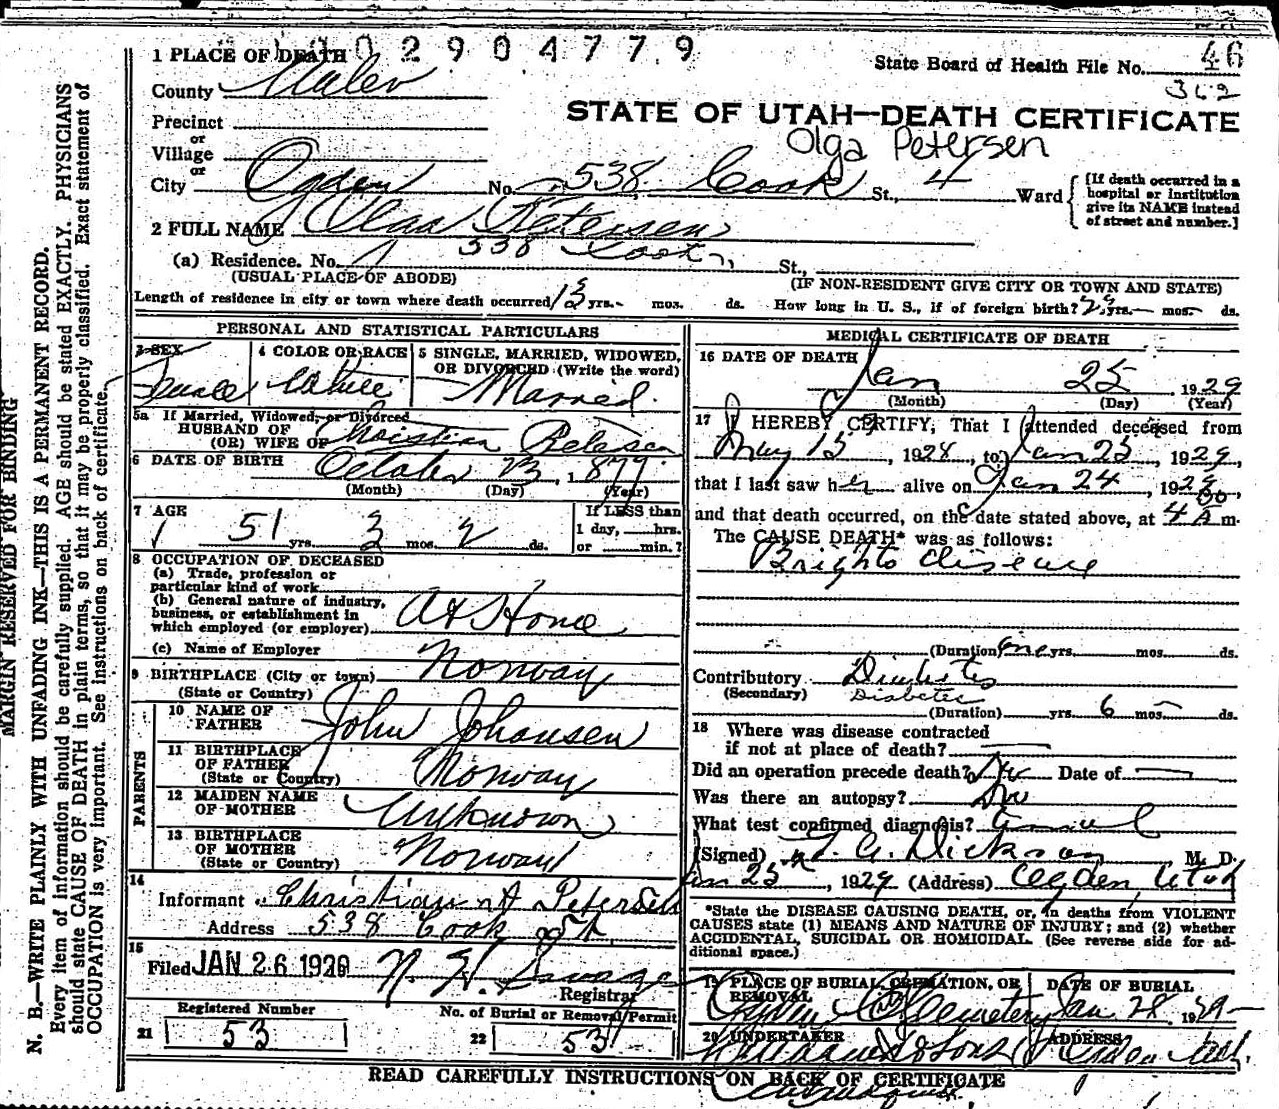 1 PLACE OF DEATH 2904779
State Board of Health File No. 46
362
County
STATE OF UTAH—DEATH CERTIFICATE
Precinct
or
Olga Petersen
Village
or
City Ogden No. 538 Cook St., 4 Ward
[If death occurred in a hospital or institution give its NAME instead of street and number.]
2 FULL NAME Olga Petersen
(a) Residence. No. 538 Cook St.,
(USUAL PLACE OF ABODE) (IF NON-RESIDENT GIVE CITY OR TOWN AND STATE)
Length of residence in city or town where death occurred yrs. mos. ds. How long in U. S., if of foreign birth? yrs. mos. ds.
PERSONAL AND STATISTICAL PARTICULARS
3 SEX 4 COLOR OR RACE 5 SINGLE, MARRIED, WIDOWED, OR DIVORCED (Write the word)
Female White Married.
5a If Married, Widowed, or Divorced
HUSBAND OF
(OR) WIFE OF Christian Petersen
6 DATE OF BIRTH October 23, 1877
(Month) (Day) (Year)
7 AGE 51 yrs. 3 mos. 2 ds.
If LESS than
1 day, hrs.
or min.?
8 OCCUPATION OF DECEASED
(a) Trade, profession or
particular kind of work
(b) General nature of industry,
business, or establishment in
which employed (or employer) At Home
(c) Name of Employer
9 BIRTHPLACE (City or town) Norway
(State or Country)
PARENTS
10 NAME OF
FATHER John Johansen
11 BIRTHPLACE
OF FATHER Norway
(State or Country)
12 MAIDEN NAME
OF MOTHER Unknown
13 BIRTHPLACE
OF MOTHER Norway
(State or Country)
14
Informant Christian A Petersen
Address 538 Cook St
15
Filed JAN 26 1929 N. H. Savage
Registrar
Registered Number No. of Burial or Removal Permit
21 53 22 53
MEDICAL CERTIFICATE OF DEATH
16 DATE OF DEATH
Jan 25 1929
(Month) (Day) (Year)
17 I HEREBY CERTIFY, That I attended deceased from
May 15, 1928, to Jan 25, 1929,
that I last saw her alive on Jan 24, 1929
and that death occurred, on the date stated above, at 4 A m.
The CAUSE DEATH* was as follows:
Brights disease
(Duration) one yrs. mos. ds.
Contributory Diabetes
(Secondary) Diabetes
(Duration) yrs. 6 mos. ds.
18 Where was disease contracted
if not at place of death?
Did an operation precede death? No Date of
Was there an autopsy? No
What test confirmed diagnosis?
(Signed) Dickson M. D.
Jan 25, 1929 (Address) Ogden, Utah
*State the DISEASE CAUSING DEATH, or, in deaths from VIOLENT
CAUSES state (1) MEANS AND NATURE OF INJURY; and (2) whether
ACCIDENTAL, SUICIDAL OR HOMICIDAL. (See reverse side for ad-
ditional space.)
19 PLACE OF BURIAL, CREMATION, OR REMOVAL DATE OF BURIAL
Ogden Cemetery Jan 28 1929
20 UNDERTAKER ADDRESS
& Sons Ogden Utah.
READ CAREFULLY INSTRUCTIONS ON BACK OF CERTIFICATE
MARGIN RESERVED FOR BINDING
N. B.—WRITE PLAINLY WITH UNFADING INK—THIS IS A PERMANENT RECORD.
Every item of information should be carefully supplied. AGE should be stated EXACTLY. PHYSICIANS
should state CAUSE OF DEATH in plain terms, so that it may be properly classified. Exact statement of
OCCUPATION is very important. See instructions on back of certificate.